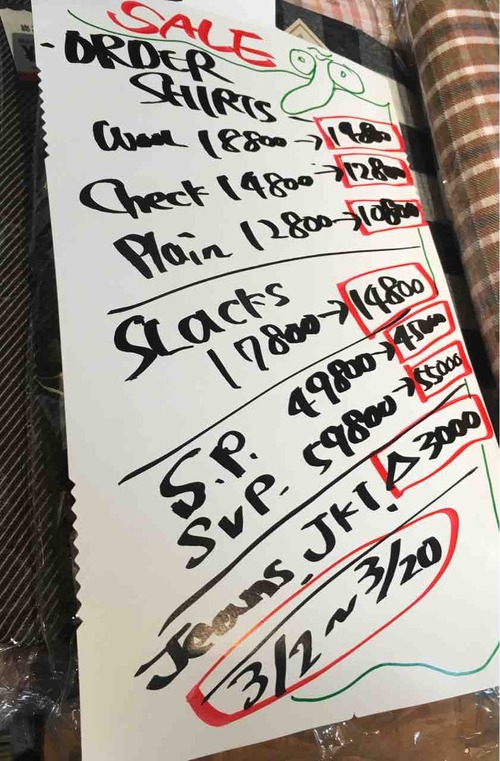 SALE
・ORDER
SHIRTS
Wool 18800→14800
Check 14800→12800
Plain 12800→10800
SLacks
17800→14800
S.P. 49800→45000
SVP. 59800→55000
Jeans. JKT. △3000
3/2～3/20